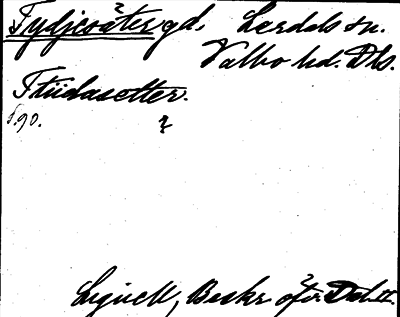 Tydjesäter gd. Lerdals sn.
Valbo hd. Dls.
Ttüdasetter.
s. 90.
Lignell, Beskr. öfv. Dal II.